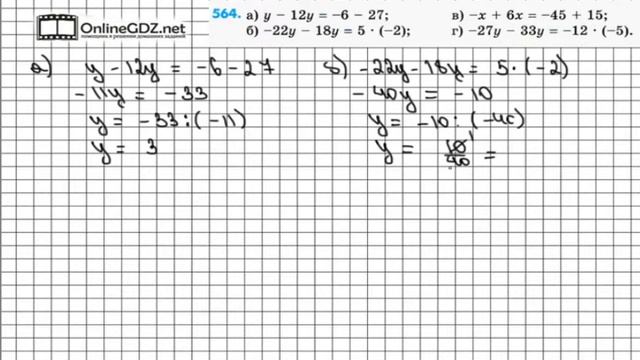 OnlineGDZ.net
помощники в решении домашних заданий
564. а) y − 12y = −6 − 27;
б) −22y − 18y = 5 · (−2);
в) −x + 6x = −45 + 15;
г) −27y − 33y = −12 · (−5).
а) y − 12y = −6 − 27
−11y = −33
y = −33 : (−11)
y = 3
б) −22y − 18y = 5 · (−2)
−40y = −10
y = −10 : (−40)
y = 10/40 =
1